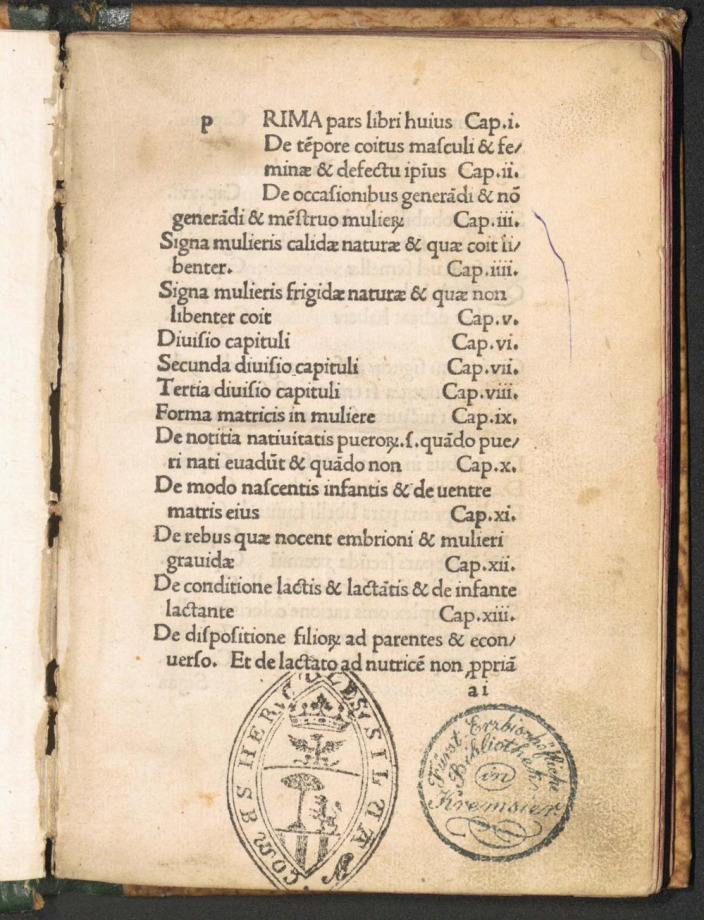 p RIMA pars libri huius Cap.i.
De tẽpore coitus maſculi & fe/
minæ & defectu ipĩus Cap.ii.
De occaſionibus generãdi & nõ
generãdi & mẽſtruo mulieꝝ Cap.iii.
Signa mulieris calidæ naturæ & quæ coit li/
benter. Cap.iiii.
Signa mulieris frigidæ naturæ & quæ non
libenter coit Cap.v.
Diuiſio capituli Cap.vi.
Secunda diuiſio capituli Cap.vii.
Tertia diuiſio capituli Cap.viii.
Forma matricis in muliere Cap.ix.
De notitia natiuitatis pueroꝝ.ſ.quãdo pue/
ri nati euadũt & quãdo non Cap.x.
De modo naſcentis infantis & de uentre
matris eius Cap.xi.
De rebus quæ nocent embrioni & mulieri
grauidæ Cap.xii.
De conditione lactis & lactãtis & de infante
lactante Cap.xiii.
De diſpoſitione filioꝝ ad parentes & econ/
uerſo. Et de lactato ad nutricẽ non ꝓpriã
a i
COMES HERCVLES SILVA
Fürst Erzbischöfliche
Bibliothek
in
Kremsier